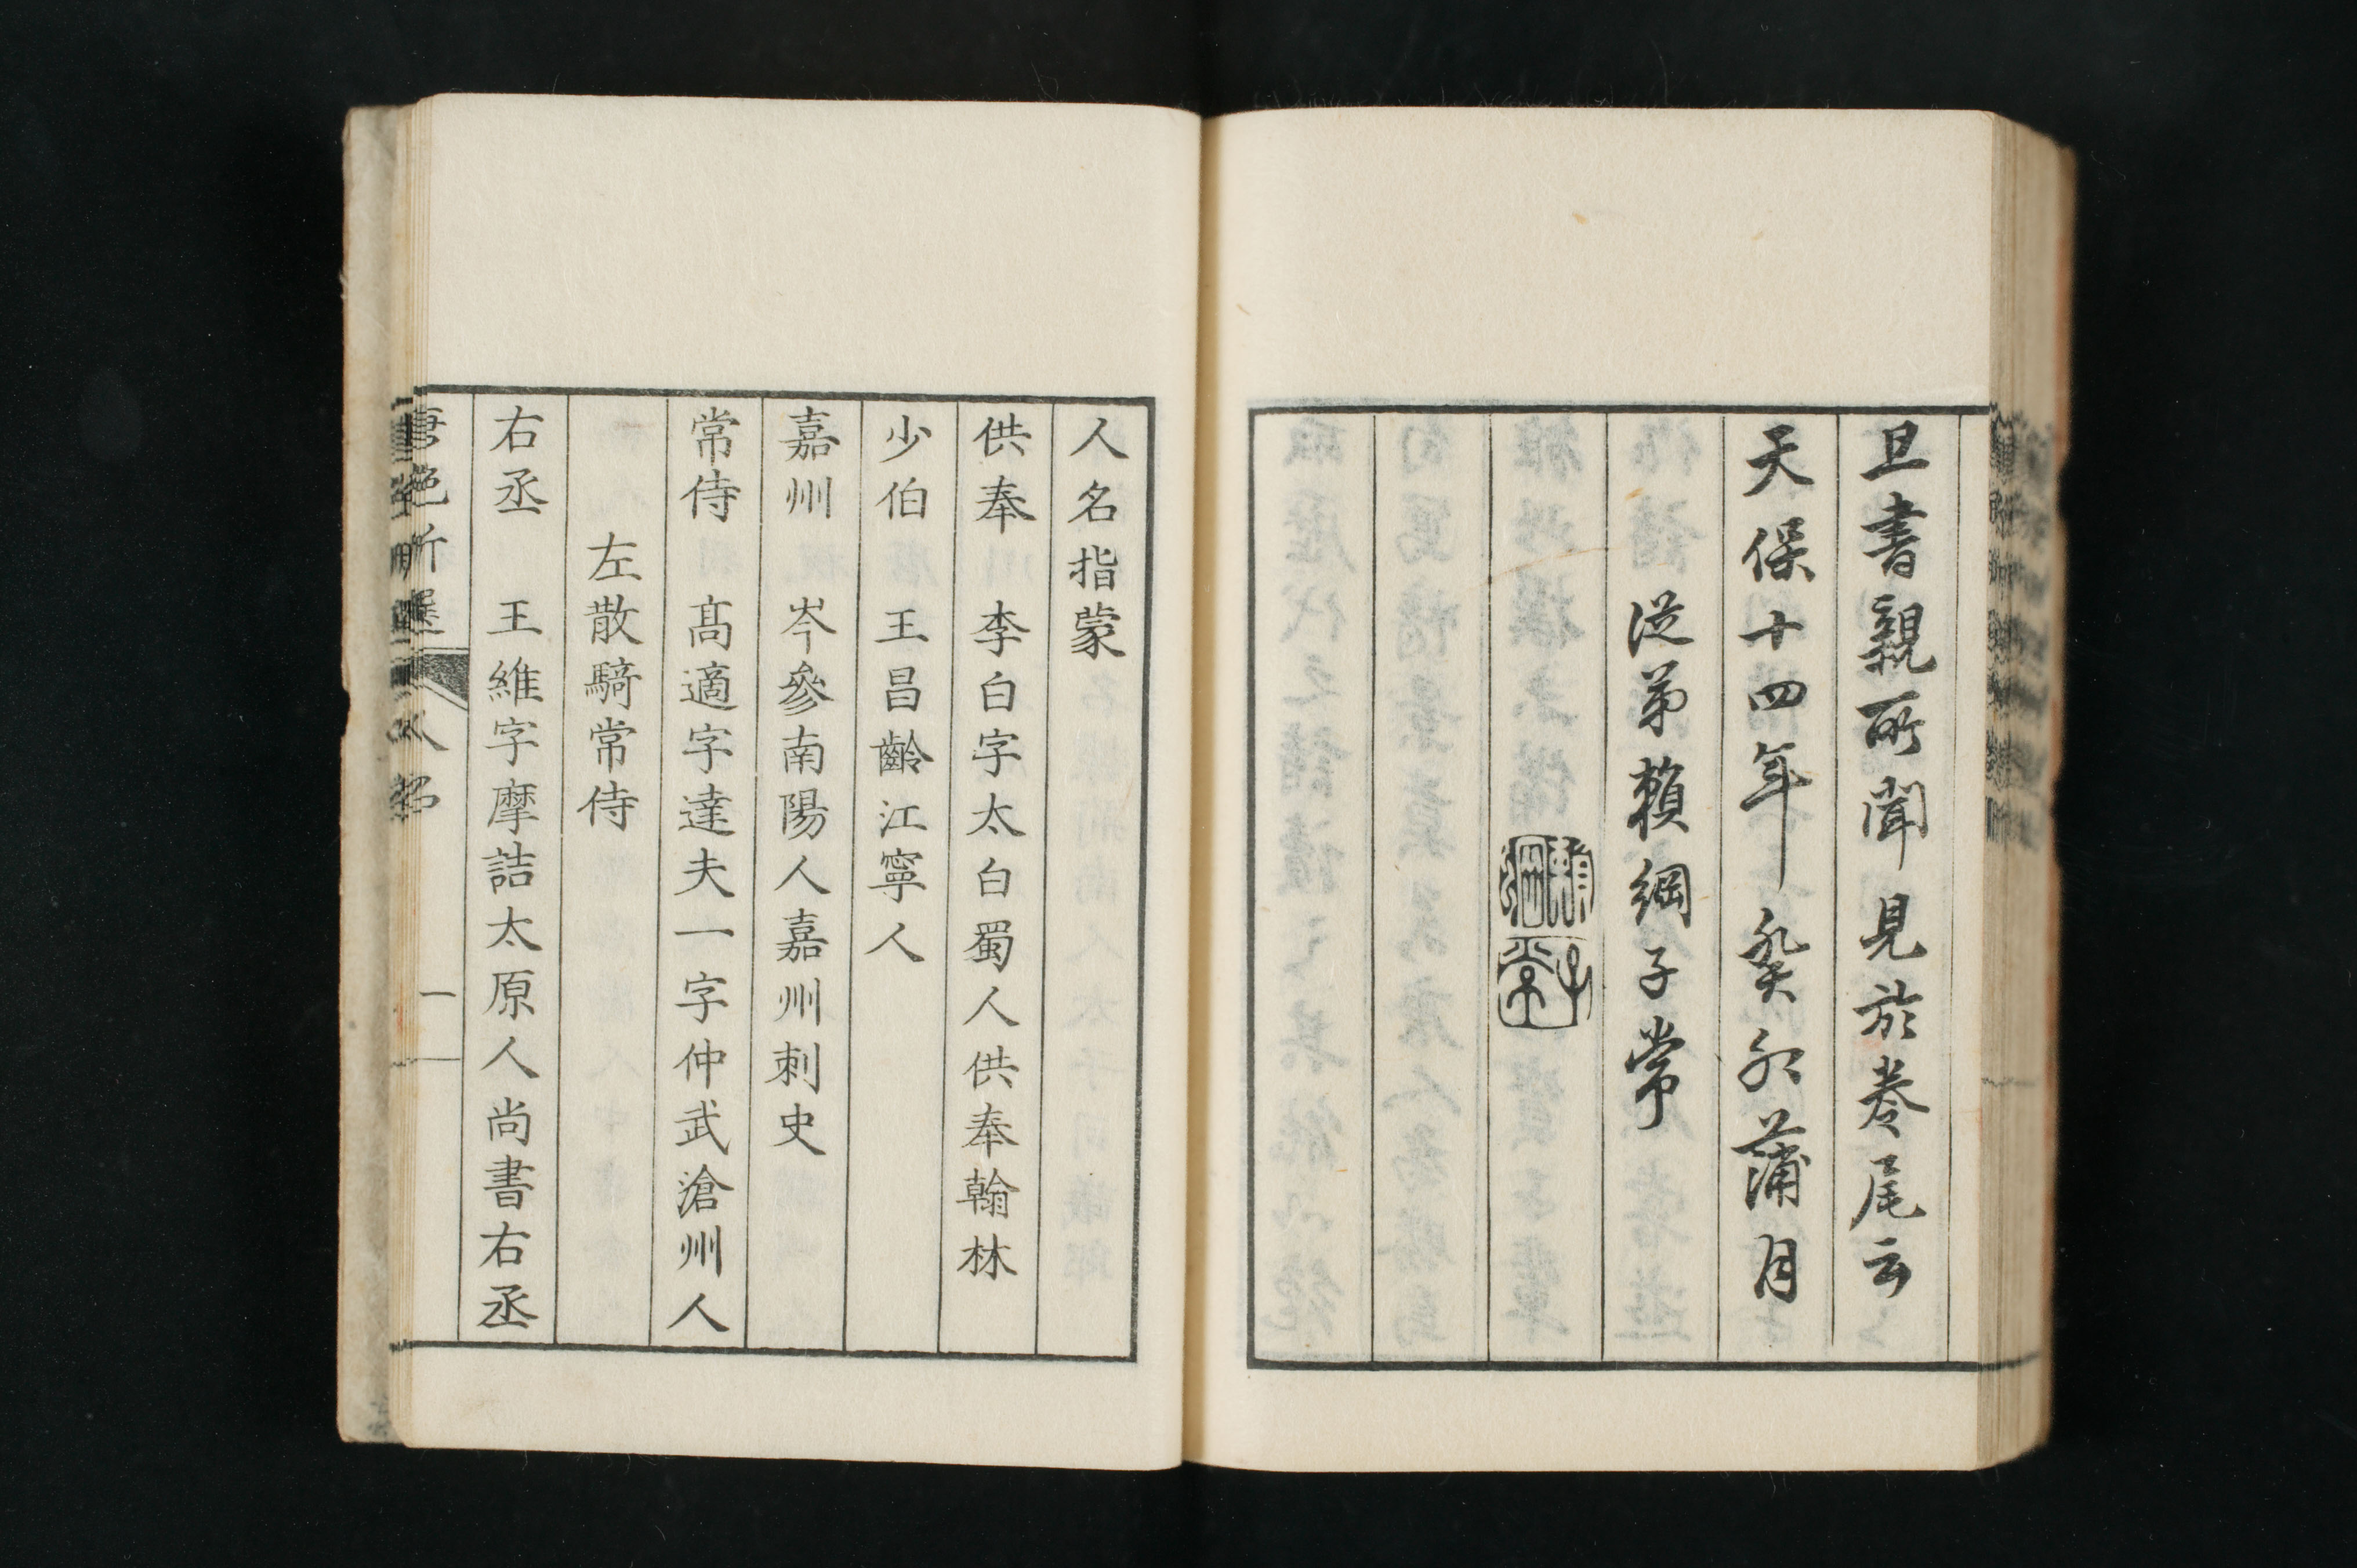 且書親所聞見於卷尾云
天保十四年癸卯蒲月
從弟賴綱子常
人名指蒙
供奉 李白字太白蜀人供奉翰林
少伯 王昌齡江寧人
嘉州 岑參南陽人嘉州刺史
常侍 高適字達夫一字仲武滄州人
左散騎常侍
右丞 王維字摩詰太原人尚書右丞
唐絕新選 人名 一